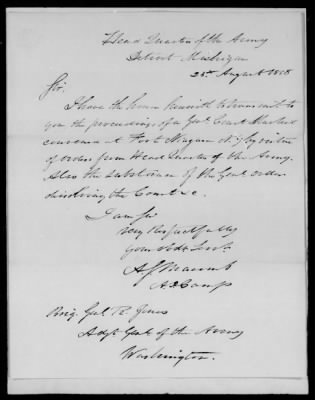 Head Quarters of the Army
Detroit Michigan
25th August 1838
Sir,
I have the honor herewith to transmit to
you the proceedings of a Genl Court Martial
convened at Fort Niagara N.Y. by virtue
of orders from Head Quarters of the Army.
Also the substance of the Genl order
dissolving the Court &c.
I am Sir
Very Respectfully
Your Obdt Servt
A. Macomb
A. D. Camp
Brig. Genl R. Jones
Adjt Genl of the Army
Washington.